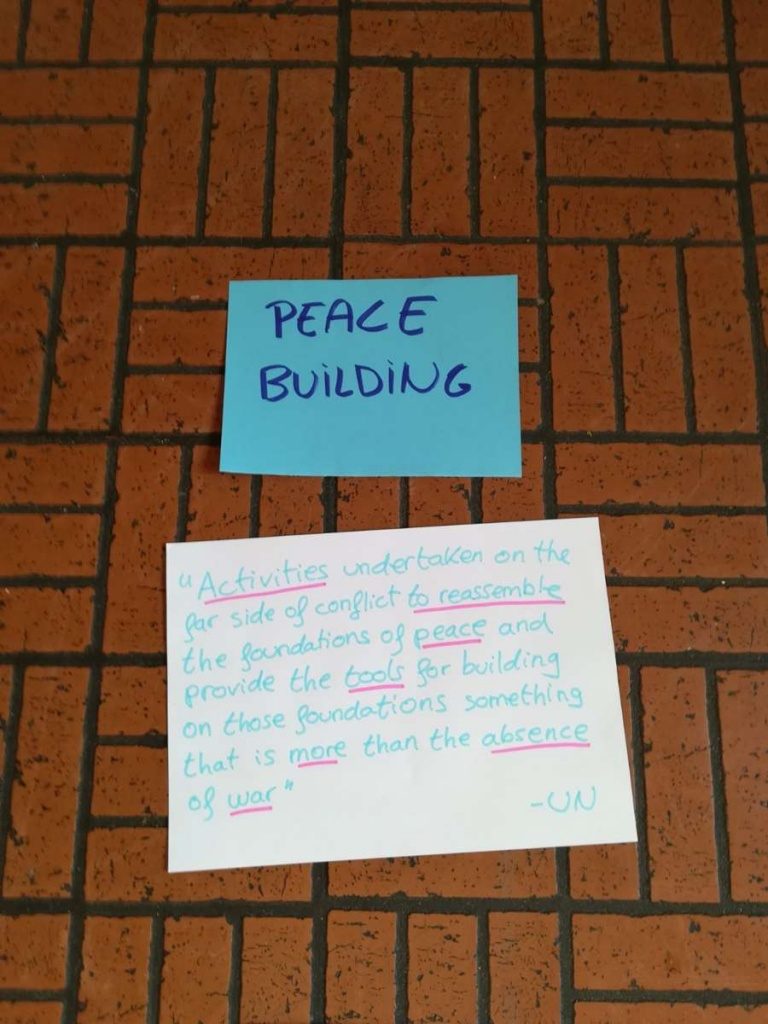 PEACE
BUiLDiNG
"Activities undertaken on the
far side of conflict to reassemble
the foundations of peace and
provide the tools for building
on those foundations something
that is more than the absence
of war"
-UN